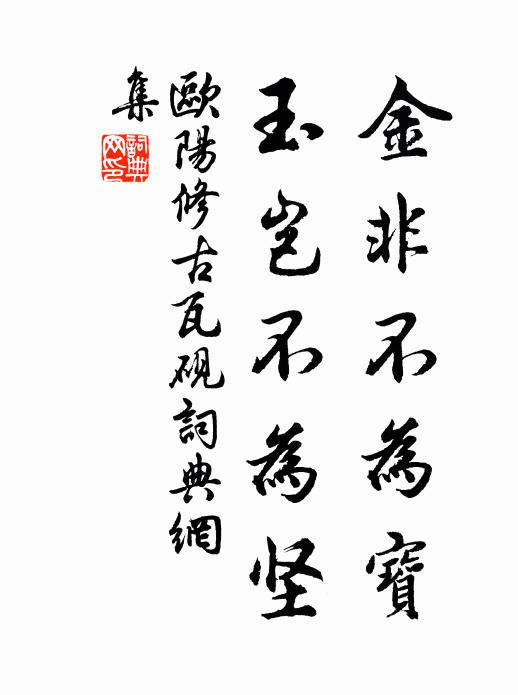 金非不為寶
玉岂不為坚
歐陽修古瓦硯詞典網
集
詞典
网印